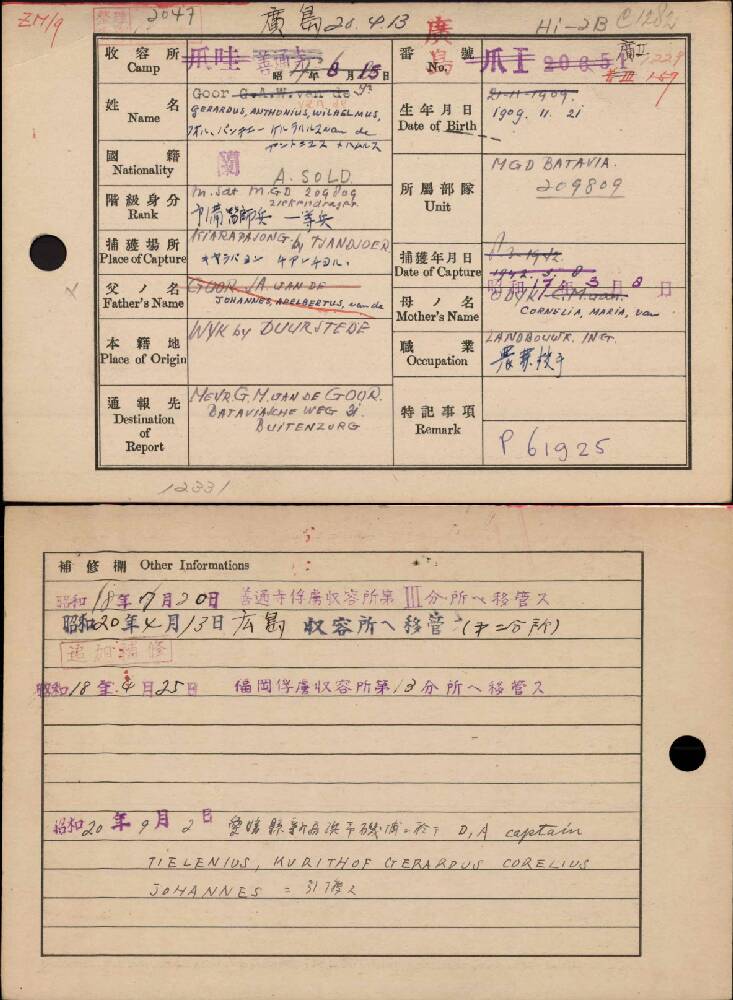 ZM/9
2047
廣島 20.4.13
廣島
Hi-2B
C1282
收容所 Camp
爪哇 善通寺
昭 年 8 月 15 日
番號 No.
爪王 20651
廣II 229
善III 157
姓名 Name
Goor G.A.W. van de
GERARDUS, ANTHONIUS, WILHELMUS, van de
生年月日 Date of Birth
21-11-1909.
1909. 11. 21
國籍 Nationality
蘭
階級身分 Rank
A. SOLD.
M. Sat M.GD 209809
Ziekendrager
予備 一等兵
所屬部隊 Unit
MGD BATAVIA.
209809
捕獲場所 Place of Capture
KIARAPAJONG by TJANDJOER
捕獲年月日 Date of Capture
1942. 3. 8
昭和 17 年 3 月 8 日
父ノ名 Father's Name
GOOR J.A. VAN DE
JOHANNES, ADELBERTUS, van de
母ノ名 Mother's Name
CORNELIA, MARIA, van
本籍地 Place of Origin
WYK by DUURSTEDE
職業 Occupation
LANDBOUWK. ING.
農業技手
通報先 Destination of Report
MEVR. G. M. VAN DE GOOR.
BATAVIASCHE WEG 31.
BUITENZORG
特記事項 Remark
P 61925
12331
補修欄 Other Informations
昭和 18 年 7 月 20 日 善通寺俘虜収容所第 III 分所ヘ移管ス
昭和 20 年 4 月 13 日 広島 収容所ヘ移管 (第二分所)
追加補修
昭和 18 年 4 月 25 日 福岡俘虜収容所第 13 分所ヘ移管ス
昭和 20 年 9 月 2 日 愛媛縣新居浜市磯浦ニ於テ D,A captain
TIELENIUS, KURITHOF GERARDUS CORELIUS
JOHANNES ニ引渡ス